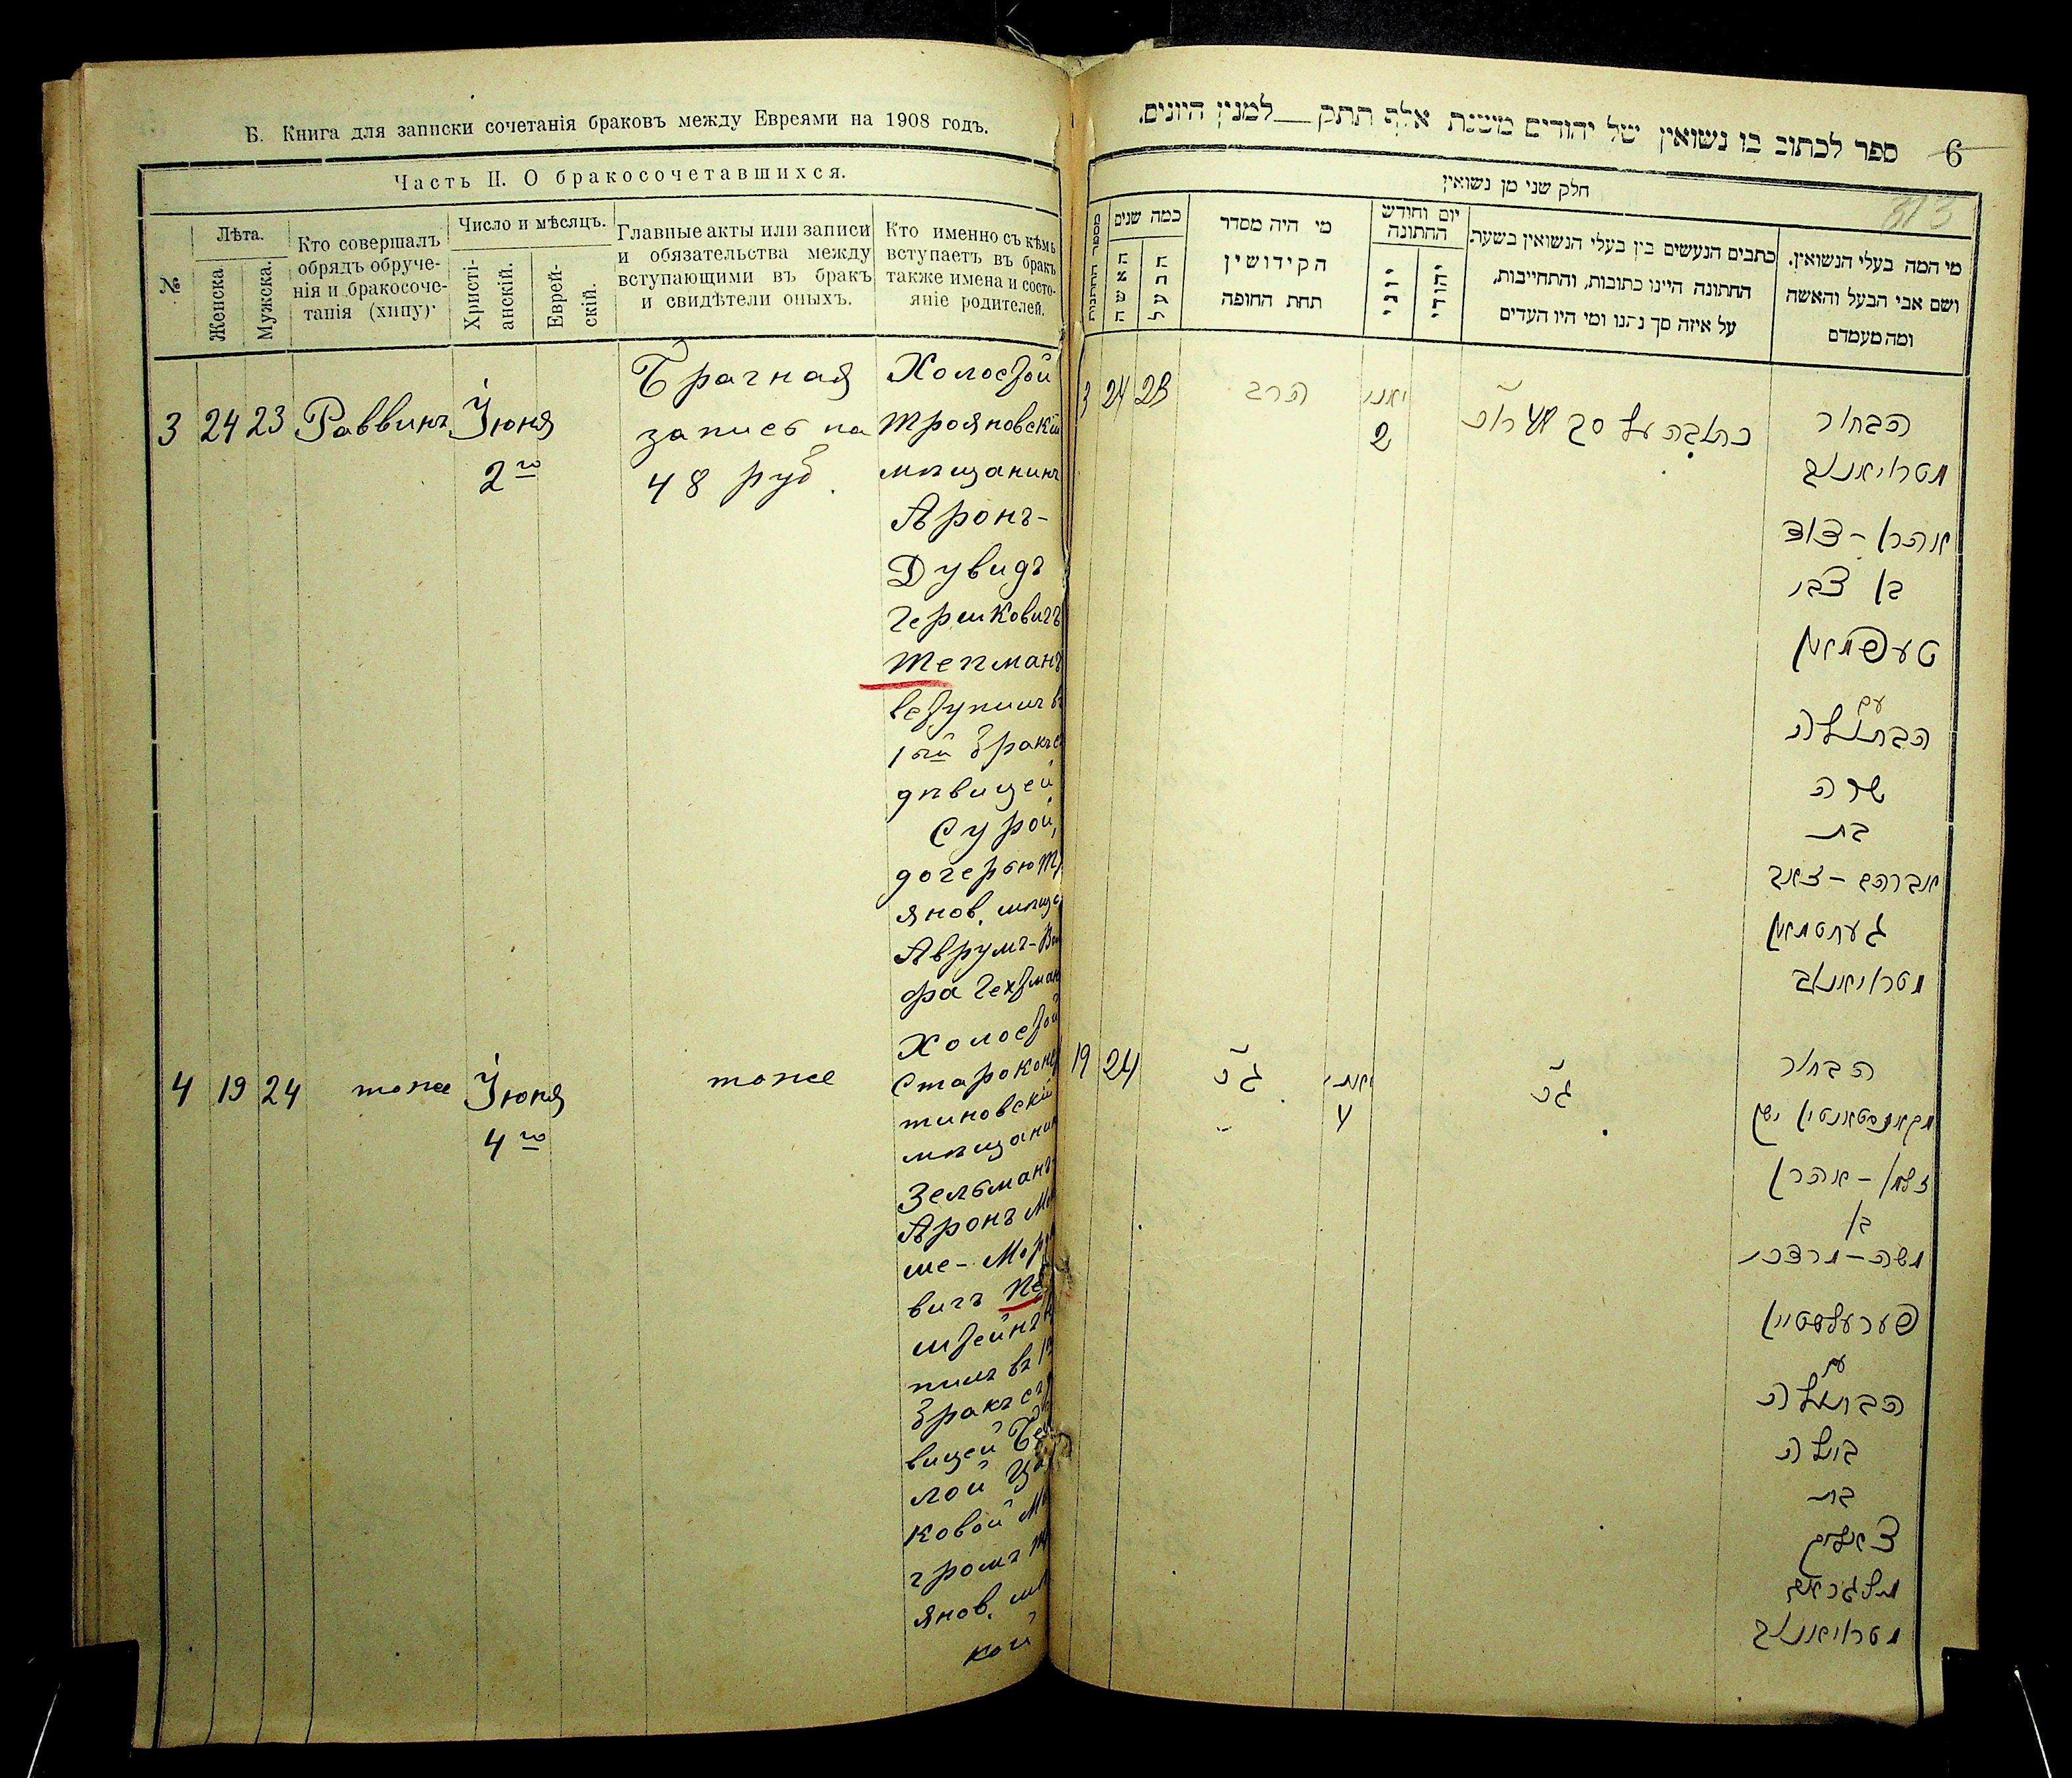 Б. Книга для записки сочетанія браковъ между Евреями на 1908 годъ.
Часть II. О бракосочетавшихся.
№
Лѣта.
Женска.
Мужска.
Кто совершалъ
обрядъ обруче-
нія и бракосоче-
танія (хипу).
Число и мѣсяцъ.
Христі-
анскій.
Еврей-
скій.
Главные акты или записи
и обязательства между
вступающими въ бракъ
и свидѣтели оныхъ.
Кто именно съ кѣмъ
вступаетъ въ бракъ
также имена и состо-
яніе родителей.
3 24 23 Раввинъ Іюня
2го
Брачная
запись на
48 руб.
Холостой
Трояновскій
мѣщанинъ
Аронъ-
Дувидъ
Гершковичъ
Тепманъ
вступилъ въ
1ый бракъ съ
дѣвицей
Сурой,
дочерью Тр
янов. мѣща
Аврумъ-Во
фа Гехтман
Холостой
4 19 24 тоже Іюня
4го
тоже
Староконс
тиновскій
мѣщанин
Зельманъ-
Аронъ Мо
ше-Мор
вичъ Пе
штейнъ
пилъ въ 1
бракъ съ
вицей Бе
лой
ковой М
громъ
янов. мѣ
кой
6
ספר לכתוב בו נשואין של יהודים משנת אלף תתק__ למנין היונים.
313
חלק שני מן נשואין
מספר החתונות
כמה שנים
האשה
הבעל
מי היה מסדר
הקידושין
תחת החופה
יום וחודש
החתונה
יוני
יהודי
כתבים הנעשים בין בעלי הנשואין בשעת
החתונה היינו כתובות, והתחייבות,
על איזה סך נתנו ומי היו העדים
מי המה בעלי הנשואין.
ושם אבי הבעל והאשה
ומה מעמדם
3 24 23 הרב יאני
2
כתובה על סך 48 רו״כ
הבחור
מטראיאנוב
אהרן - דוד
בן צבי
טעפמאן
עם
הבתולה
שרה
בת
אברהם - זאב
געחטמאן
מטראיאנוב
19 24 ג״כ
4
ג״כ
הבחור
מקאנסטאנטין ישן
זלמן - אהרן
בן
משה - מרדכי
פערעלשטיין
עם
הבתולה
ביילה
בת
מטראיאנוב